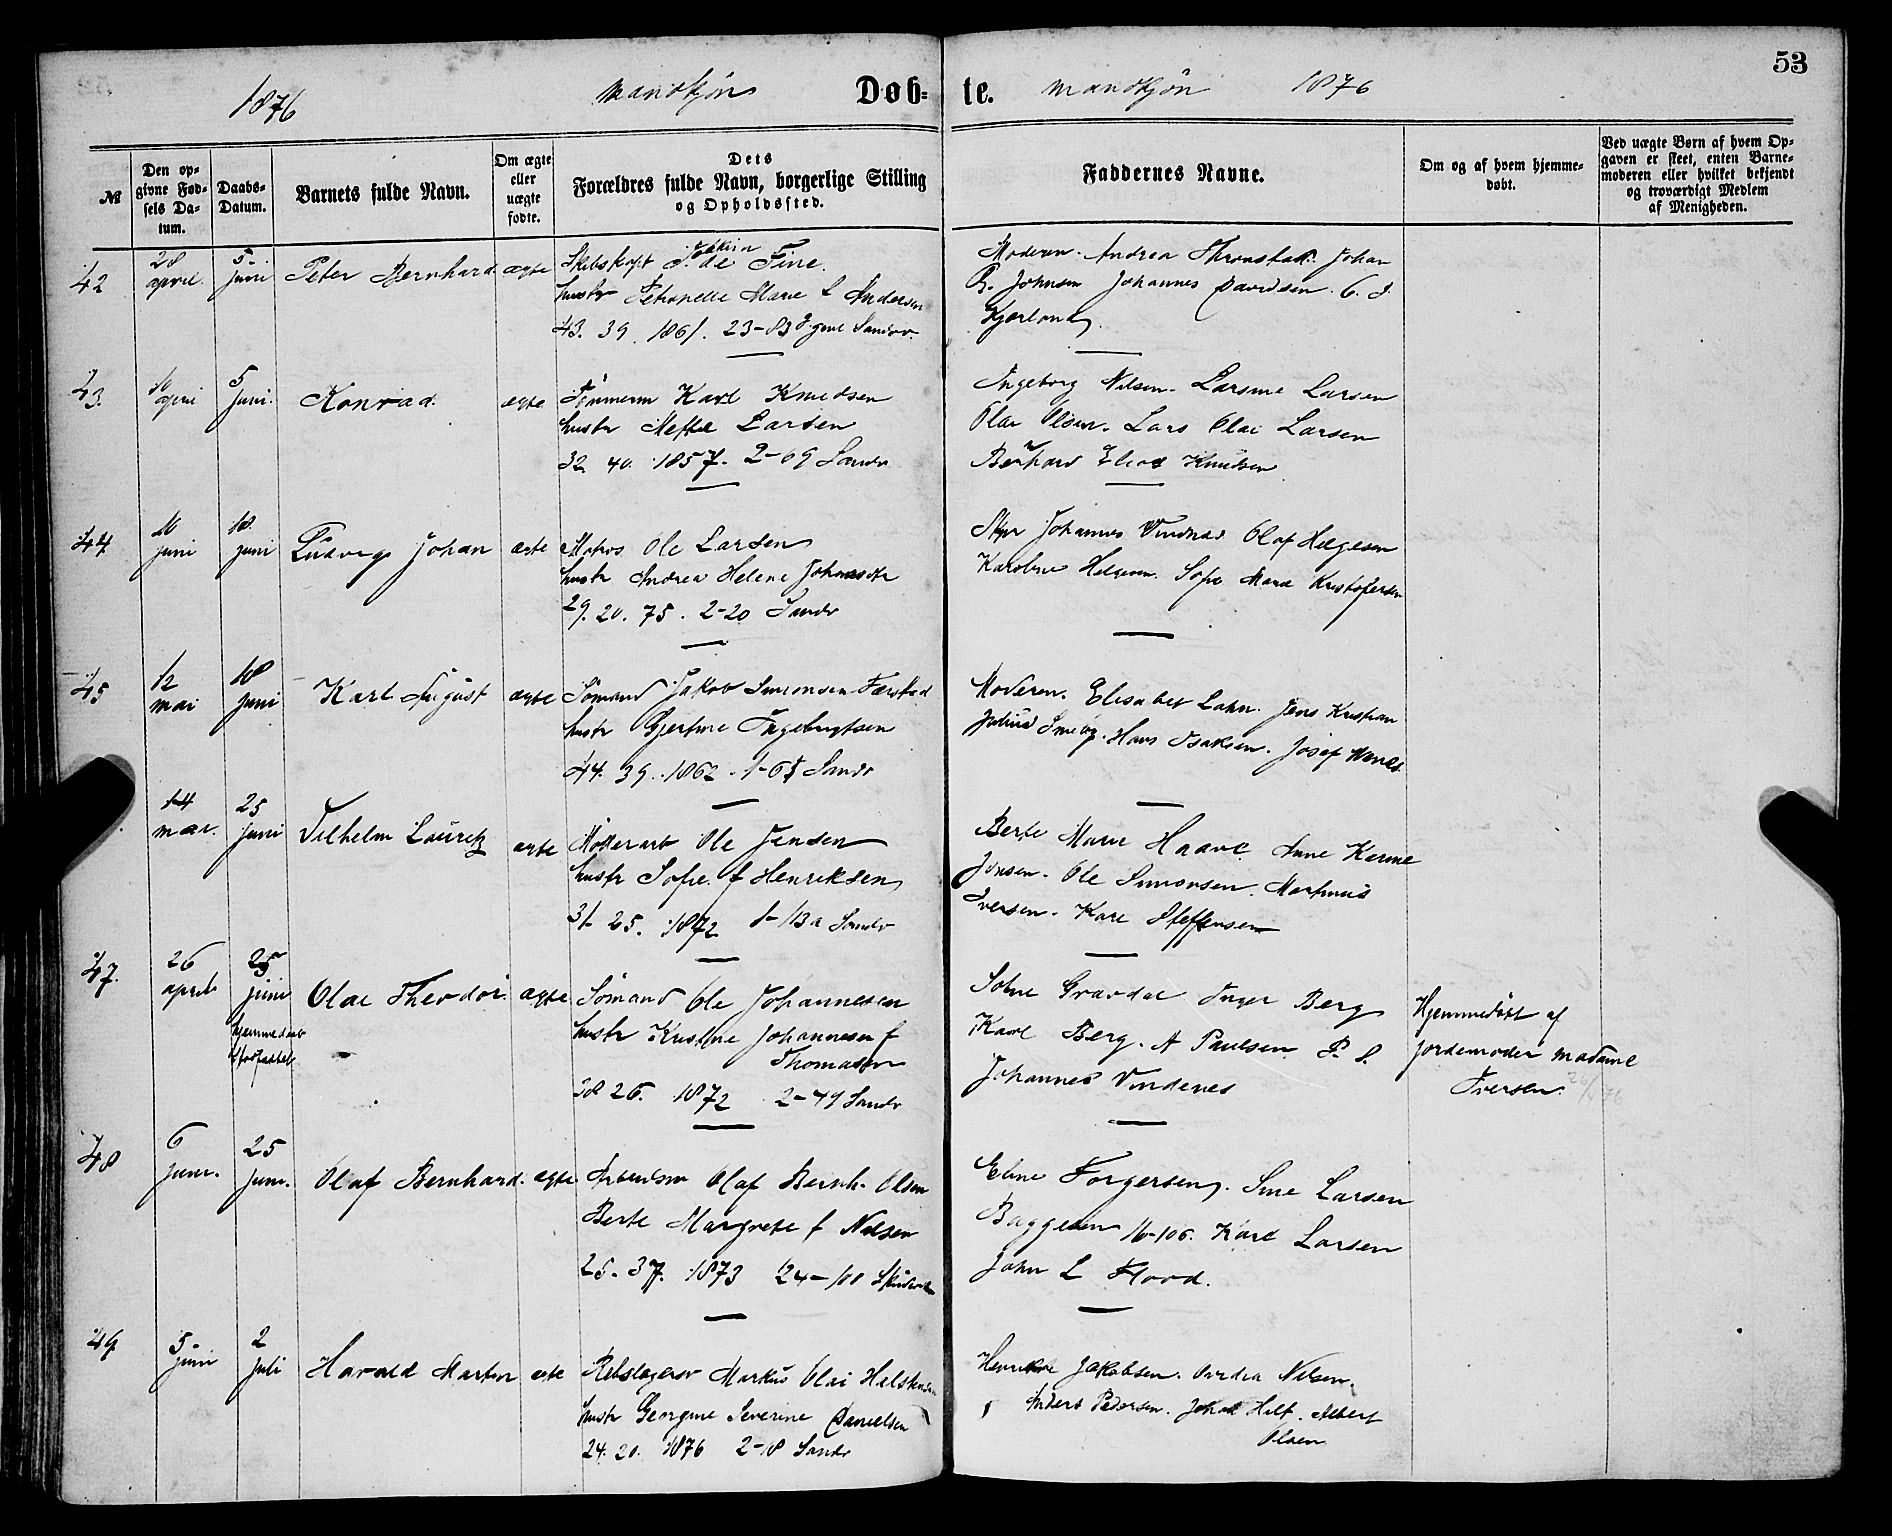 53
1876 Mandkjøn Døb= te. Mandkjøn 1876
№
Den op=
givne Fød=
sels Da=
tum.
Daabs=
Datum.
Barnets fulde Navn.
Om ægte
eller
uægte
fødte.
Dets
Forældres fulde Navn, borgerlige Stilling
og Opholdssted.
Faddernes Navne.
Om og af hvem hjemme=
døbt.
Ved uægte Børn af hvem Op=
gaven er skeet, enten Barne=
moderen eller hvilket bekjendt
og troværdigt Medlem
af Menigheden.
42
28
april
5
juni
Peter Bernhard
ægte
de Fine.
hustr Petronelle Marie f Andersen
43. 39. 1861. 23-83
Moderen. Andrea Johan
Johnsen Johannes Davidsen.
43.
5
juni.
Konrad.
ægte
Tømmerm Karl Knudsen
hustr Mette Larsen
32 40. 1857. 2-69 Sandv
Ingeborg Nilsen. Larsine Larsen
Olai Olsen. Lars Olai Larsen
Bernhard Elias Knudsen
44
juni
18
juni
Ludvig Johan
ægte
Matros Ole Larsen
hustr Andrea Helene
29. 20. 75. 2-20 Sandv
Johannes Vindnes Olaf Helgesen
Karoline Helgesen. Sofie Marie Kristofersen
45
12
mai
18
juni
Karl August
ægte
Sømand Jakob Simonsen
hustr Gjertine Ingebrigtsen
44. 39. 1862. 1-65 Sandv
Moderen. Elisabet Lahn. Jens Kristian
Julius Isaksen. Josef
14
mai.
25
juni
Vilhelm Lauritz
ægte
Ole Jensen
hustr Sofie f Henriksen
31 25. 1872 1-113a Sandv
Berte Marie Haave. Anne Karine
Jensen. Ole Simonsen. Martinus
Iversen. Karl Steffensen
47.
26
april
25
juni
hjemmedøbt
Olai Theodor.
ægte
Sømand Ole Johannesen
hustr Kristine Johannesen f
Thomasen
28 26. 1872 2-49 Sandv
Gravdal Inger Berg
Karl Berg. A Paulsen
Johannes Vindenes
Hjemmedøbt af
jordemoder madame
Iversen.
48
6
juni.
25
juni.
Olaf Bernhard.
ægte
Arbeidsm Olaf Bernh. Olsen
Berte Margrete f Nilsen
25. 37. 1873
Eline Torgersen. Sine Larsen
Baggesen 16-106. Karl Larsen
John L Flood.
49
5
juni
2
juli
Harald Martin
ægte
Rebslager Markus Olai
hustr Georgine Severine Danielsen
24. 20. 1876 2-18 Sandv
Jakobsen. Nilsen.
Anders Pedersen. Albert
Olsen